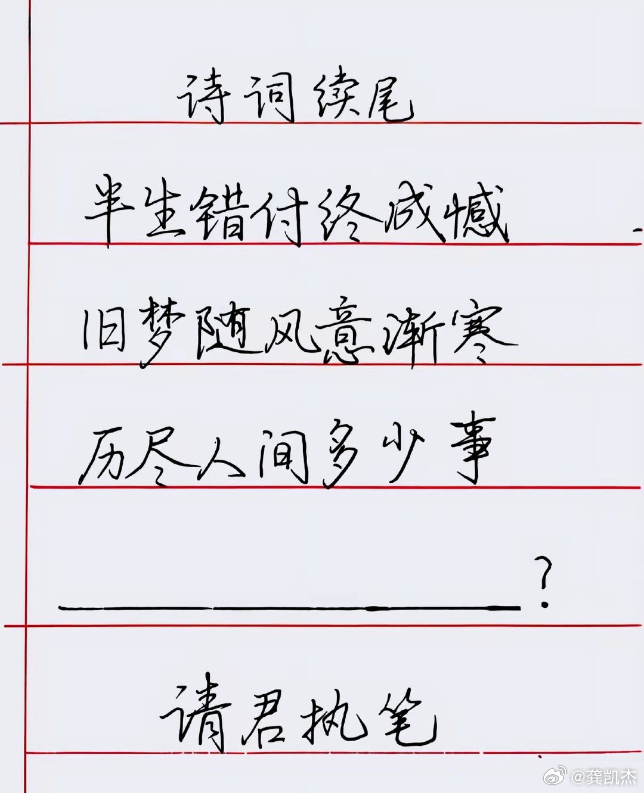 诗词续尾
半生错付终成憾
旧梦随风意渐寒
历尽人间多少事
?
请君执笔
@龚凯杰